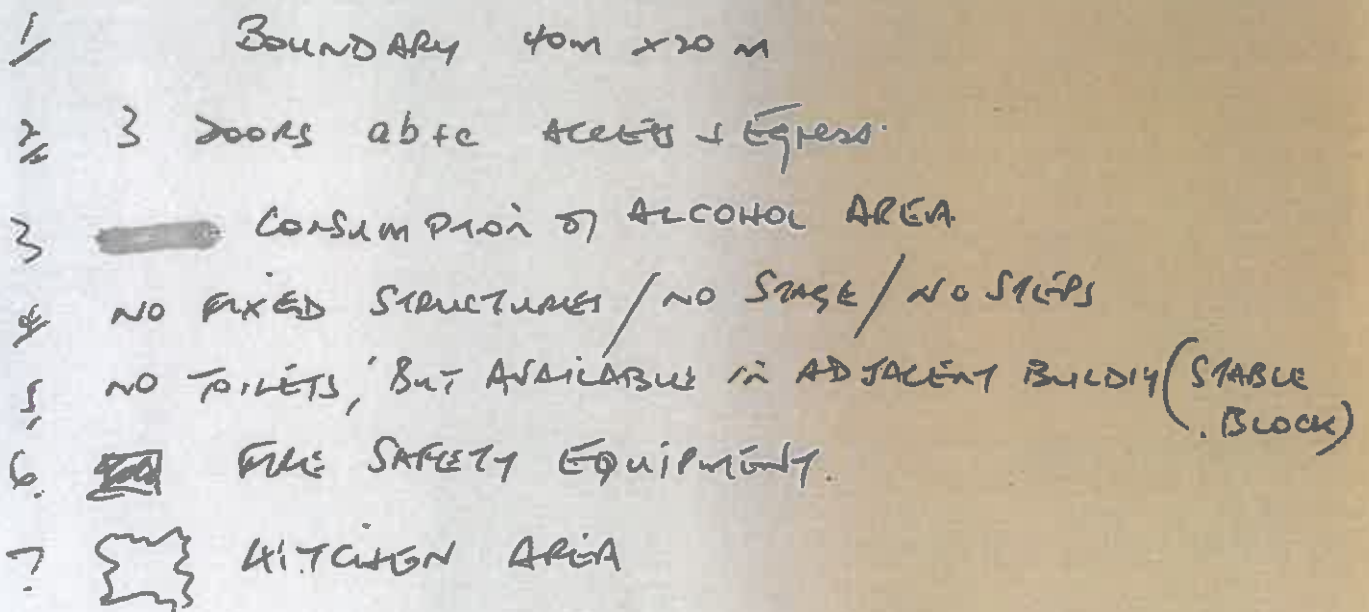 1/ BOUNDARY 40m x 20 m
2/ 3 DOORS a b + c ACCESS + Egress.
3 CONSUMPTION OF ALCOHOL AREA
4 NO FIXED STRUCTURES / NO STAGE / NO STEPS
5, NO TOILETS, BUT AVAILABLE in ADJACENT BUILDIY (STABLE
BLOCK)
6. FIRE SAFETY EQUIPMENT.
7 KITCHEN AREA